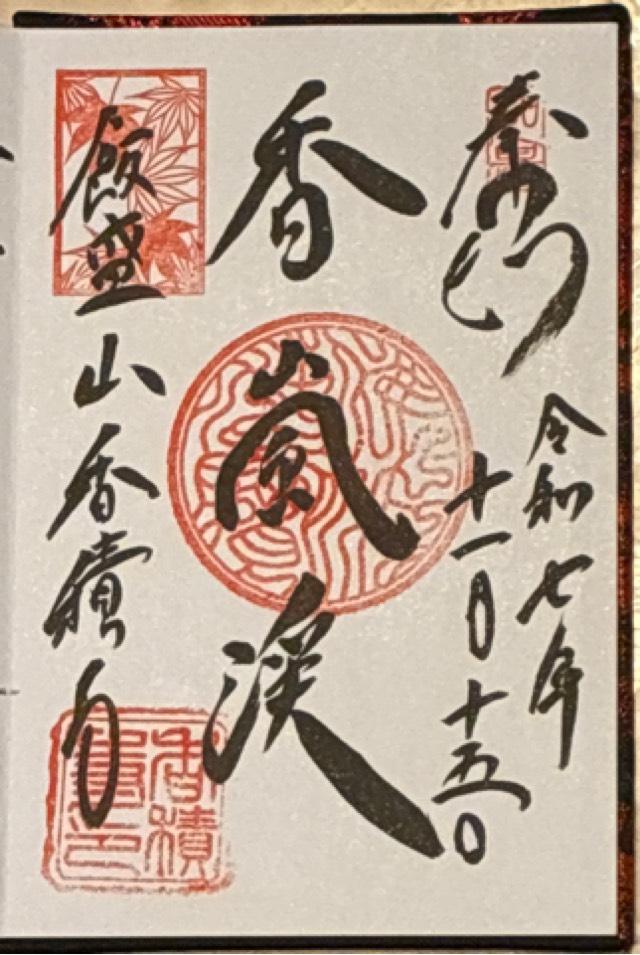 奉拝
令和七年
十一月十五日
香嵐渓
飯盛山香積寺
香積